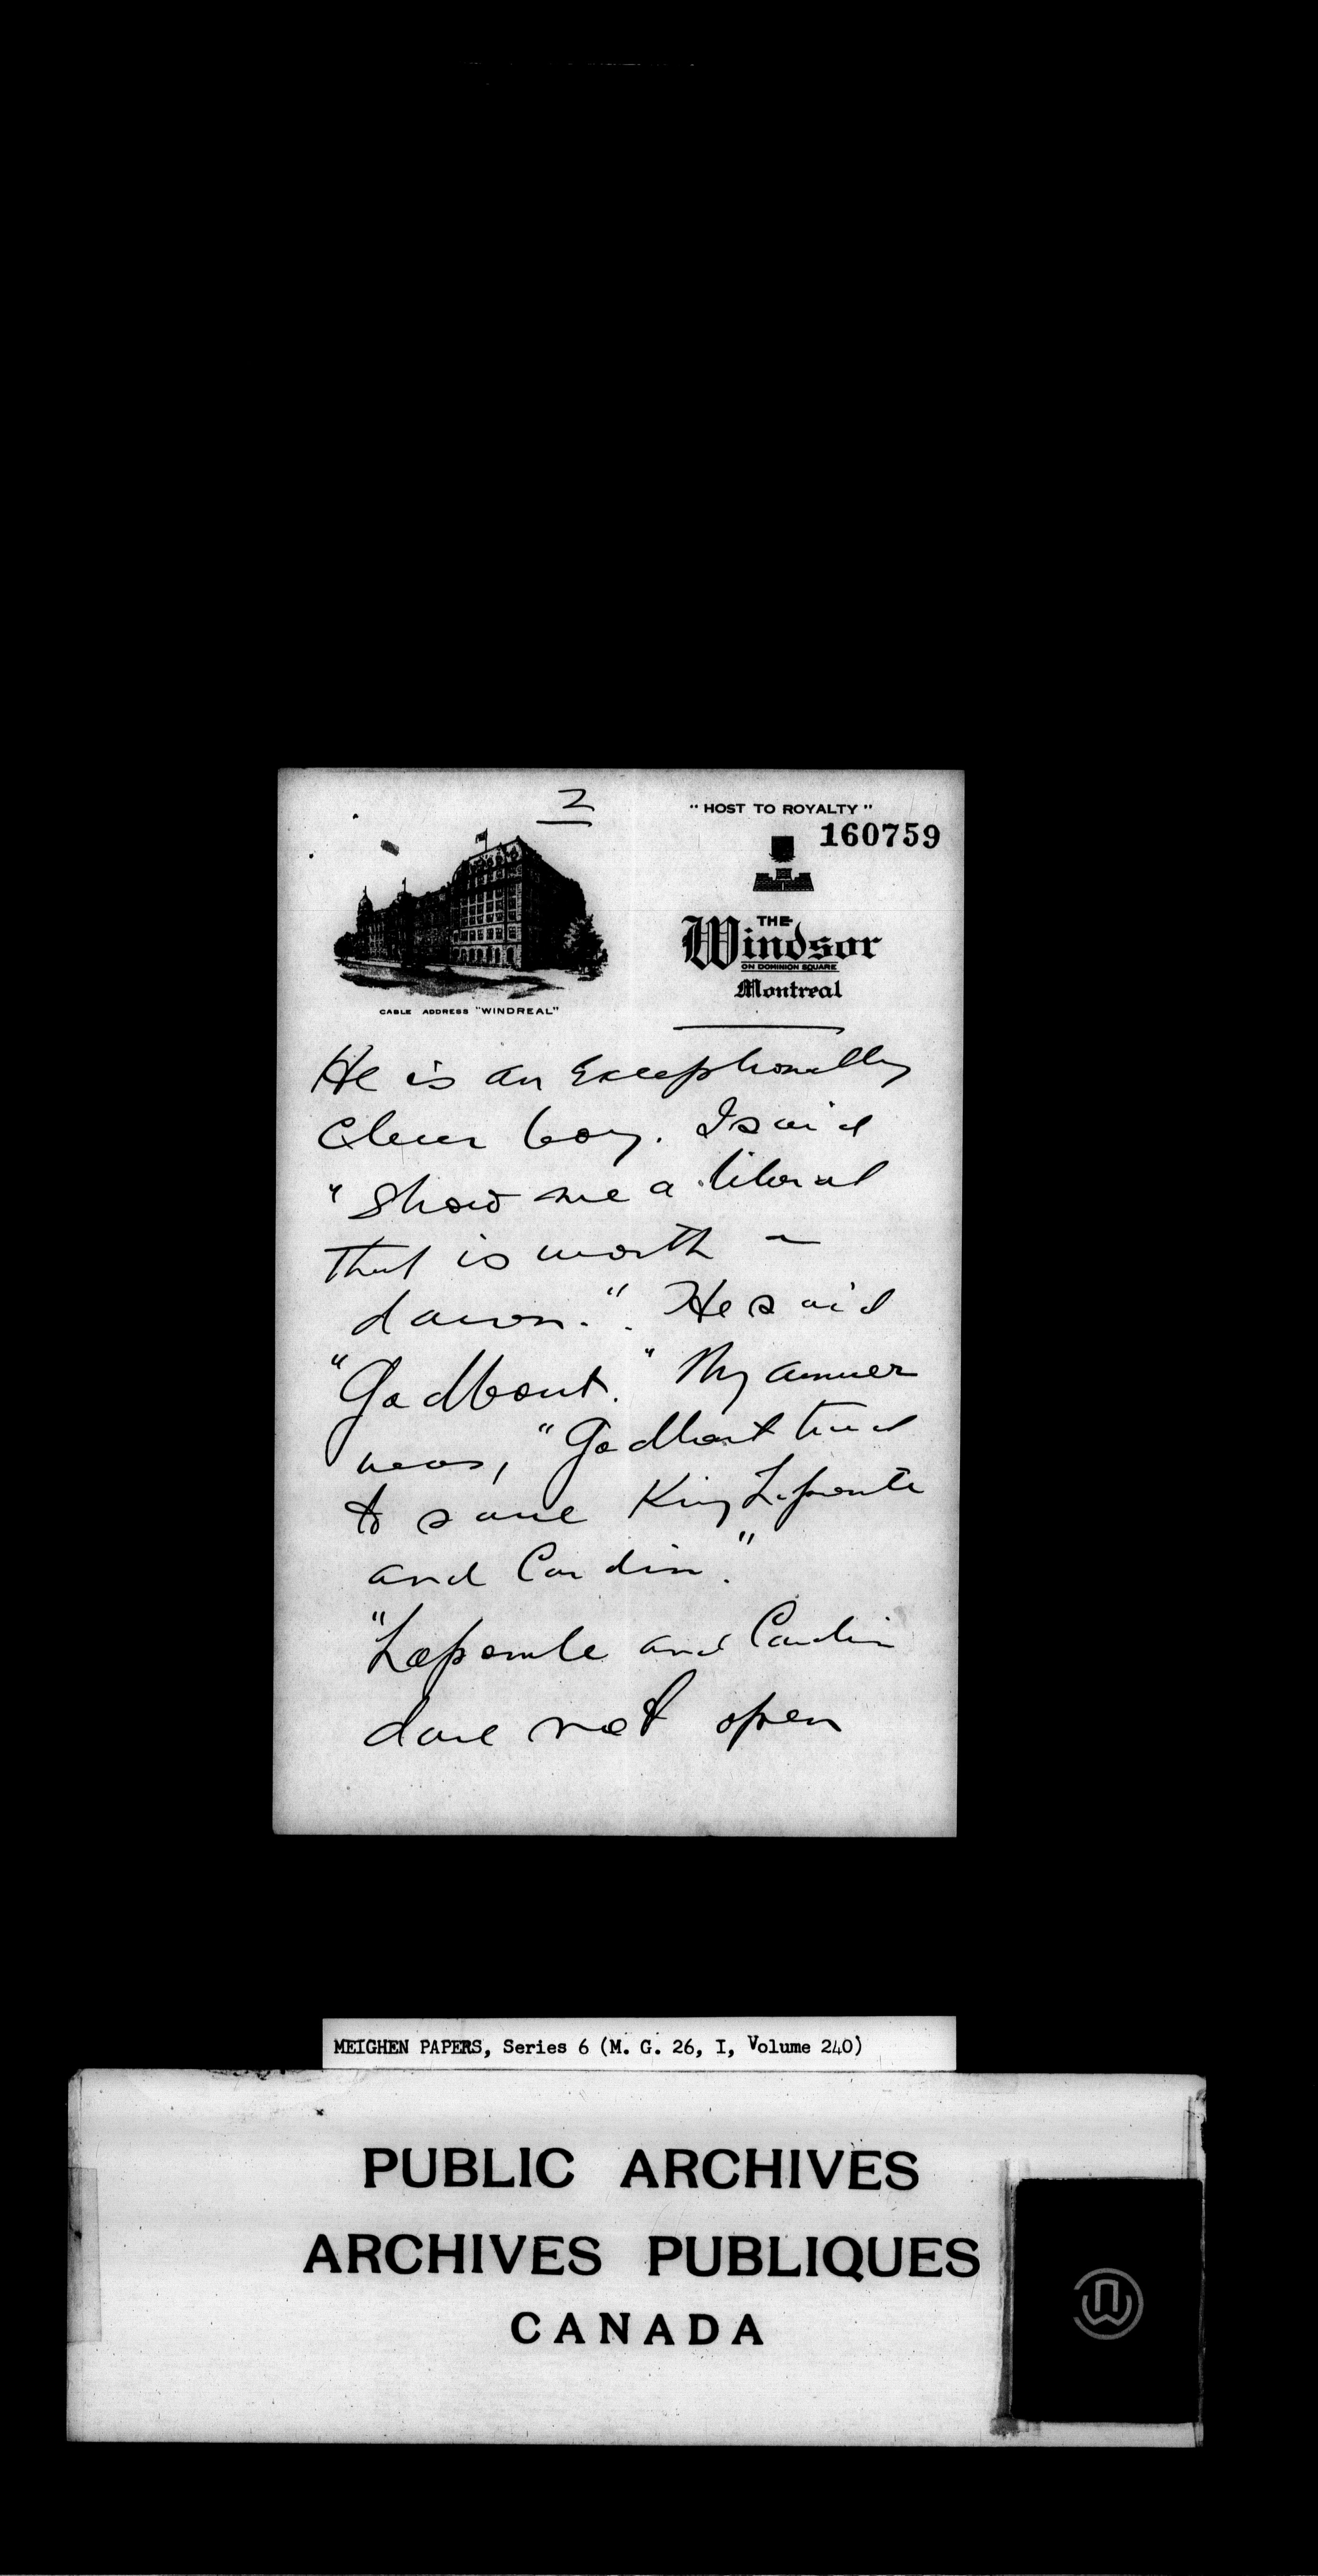 2
"HOST TO ROYALTY"
160759
THE
Windsor
ON DOMINION SQUARE
Montreal
CABLE ADDRESS "WINDREAL"
He is an exceptionally
clever boy. I said
"Show me a liberal
that is worth a
damn." He said
"Godbout." My answer
was, "Godbout tried
to save King Lapointe
and Cardin."
"Lapointe and Cardin
dare not open
MEIGHEN PAPERS, Series 6 (M. G. 26, I, Volume 240)
PUBLIC ARCHIVES
ARCHIVES PUBLIQUES
CANADA